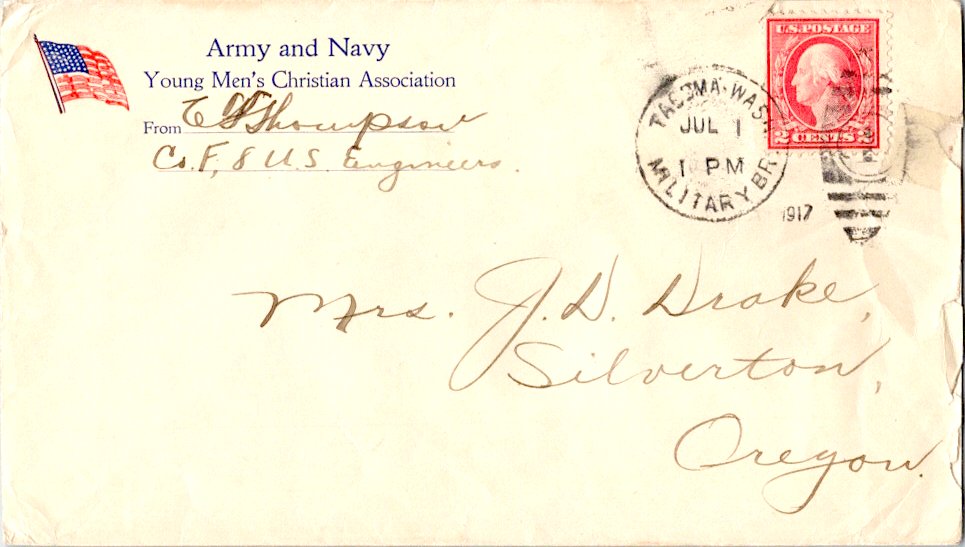 Army and Navy
Young Men's Christian Association
From E G Thompson
Co. F, 8 U.S. Engineers.
TACOMA. WASH.
JUL 1
1 PM
MILITARY BR.
1917
U.S. POSTAGE
2 CENTS 2
Mrs. J. D. Drake,
Silverton,
Oregon.